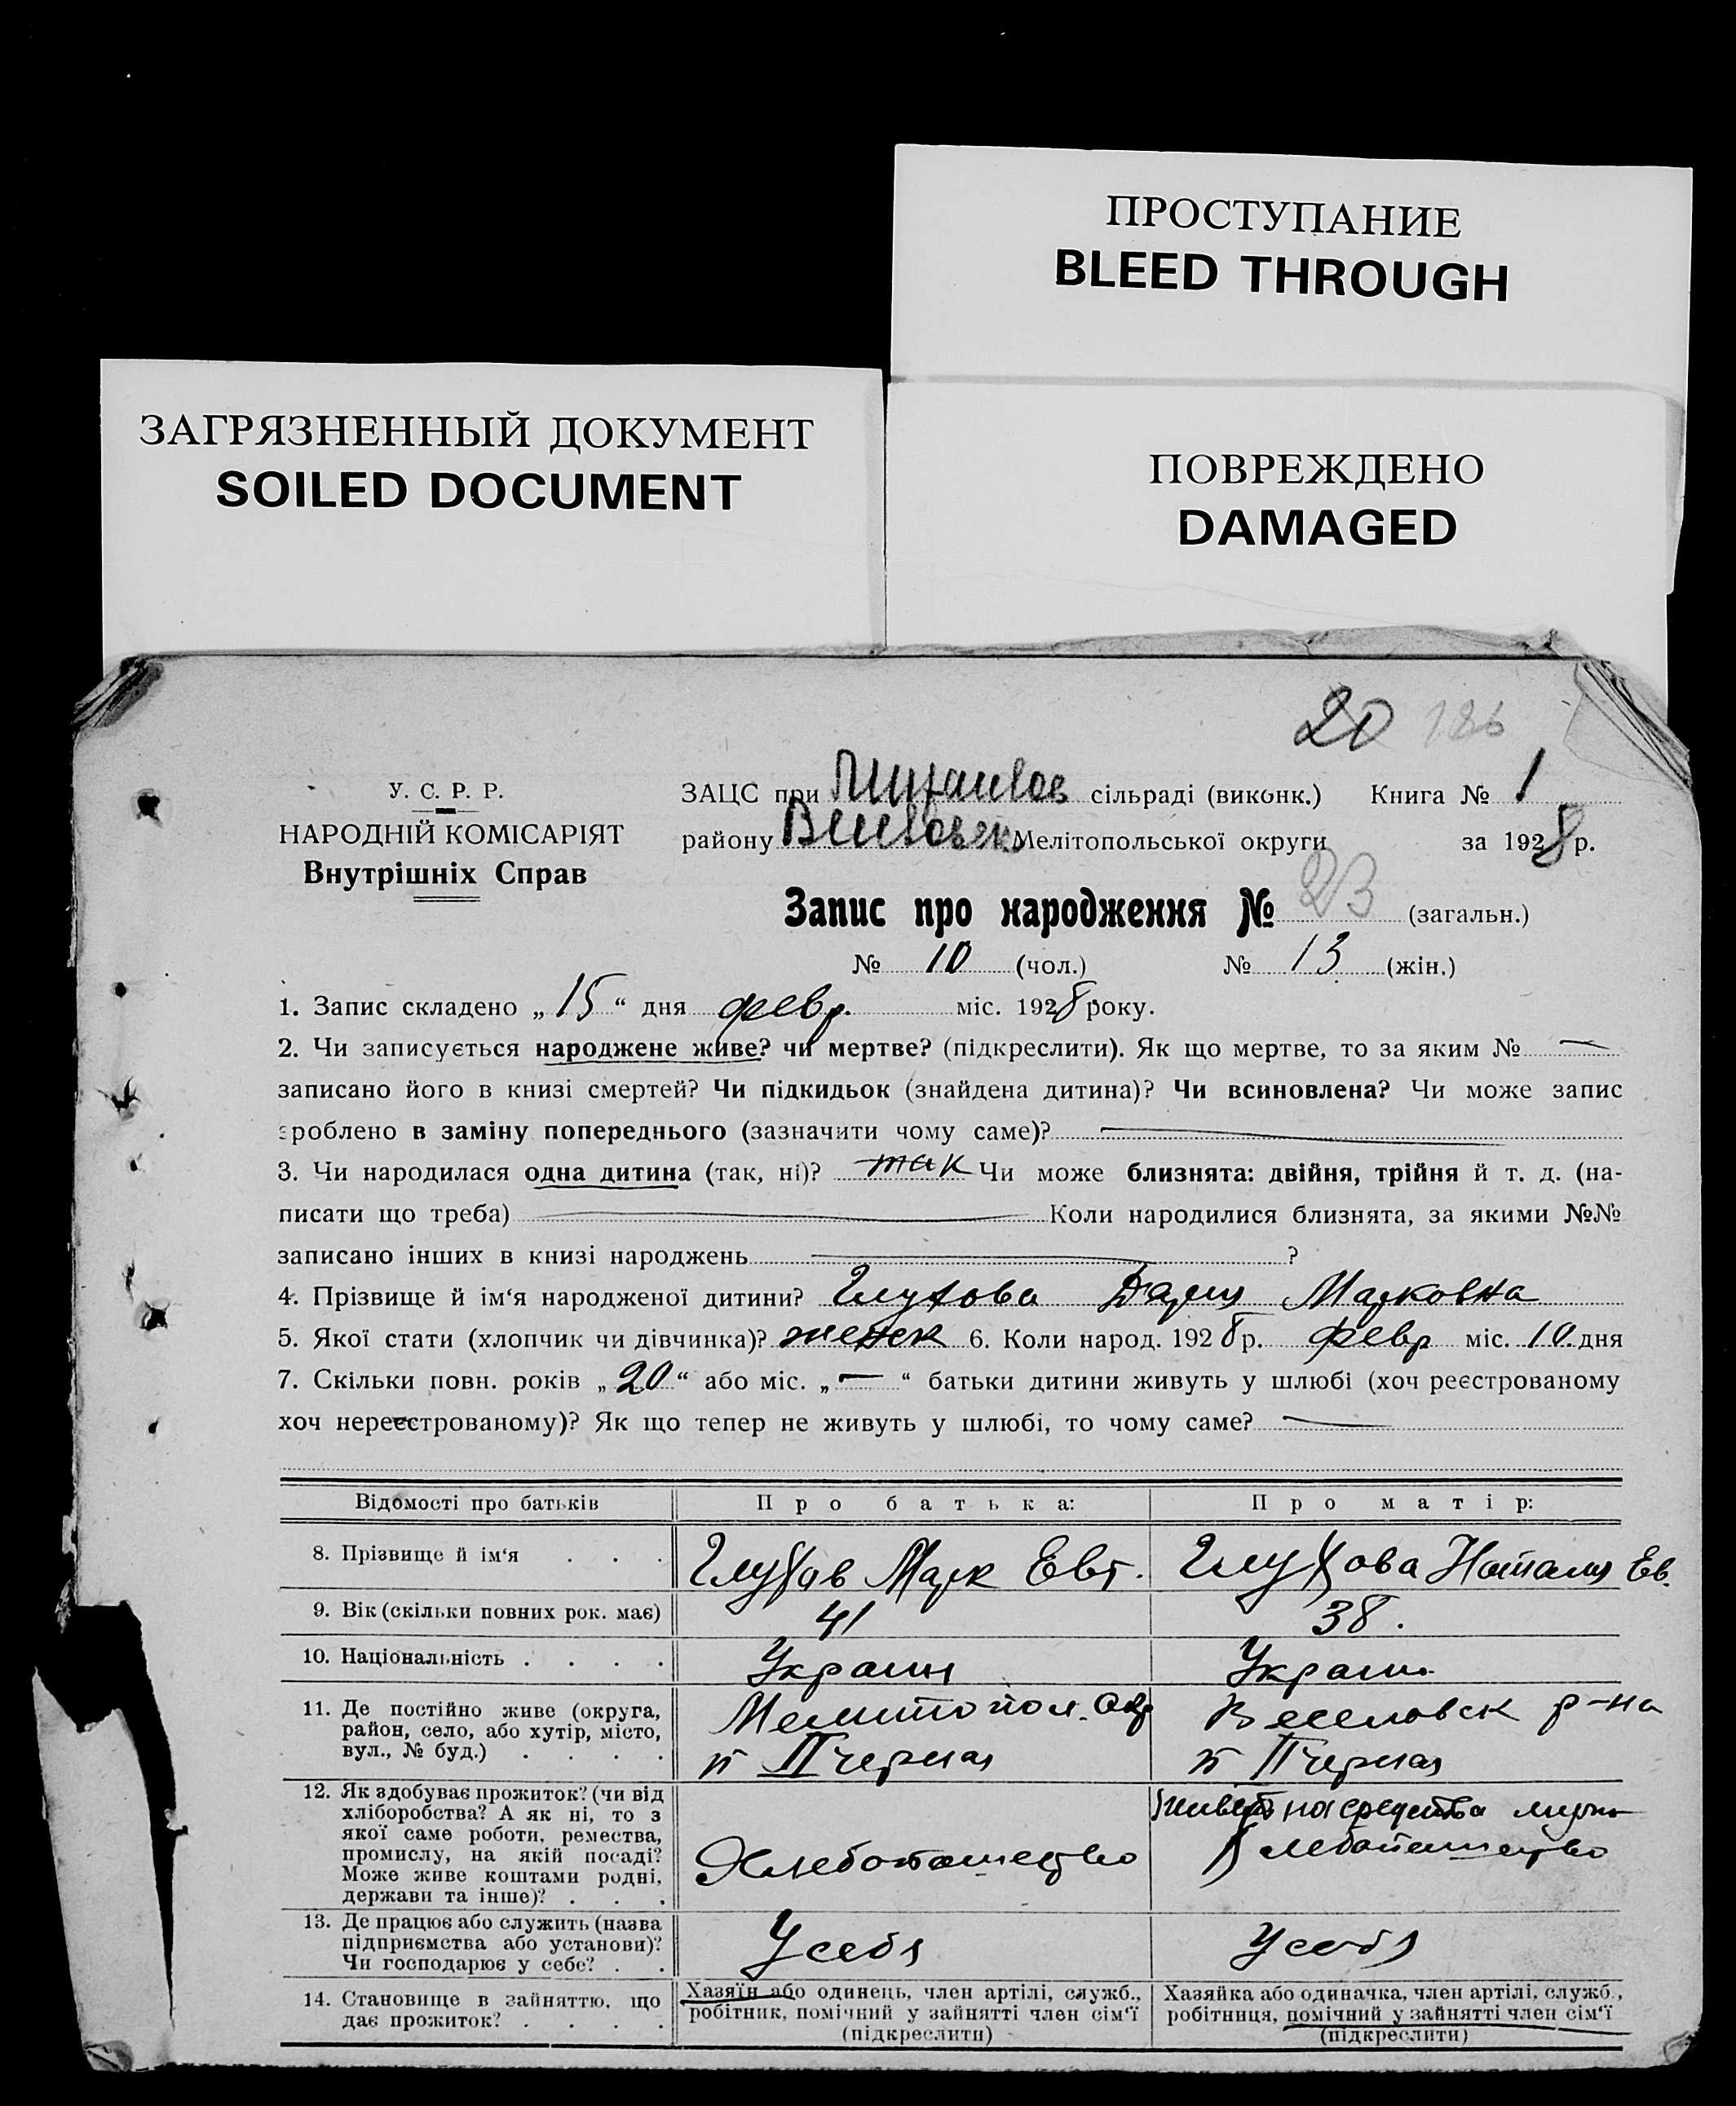 ПРОСТУПАНИЕ
BLEED THROUGH
ЗАГРЯЗНЕННЫЙ ДОКУМЕНТ
SOILED DOCUMENT
ПОВРЕЖДЕНО
DAMAGED
20 186
У. С. Р. Р.
НАРОДНІЙ КОМІСАРІЯТ
Внутрішніх Справ
ЗАЦС при сільраді (виконк.) Книга № 1
району Мелітопольської округи за 1928 р.
Запис про народження № 23 (загальн.)
№ 10 (чол.) № 13 (жін.)
1. Запис складено „ 15 “ дня февр. міс. 1928 року.
2. Чи записується народжене живе? чи мертве? (підкреслити). Як що мертве, то за яким № —
записано його в книзі смертей? Чи підкидьок (знайдена дитина)? Чи всиновлена? Чи може запис
зроблено в заміну попереднього (зазначити чому саме)? —
3. Чи народилася одна дитина (так, ні)? так Чи може близнята: двійня, трійня й т. д. (на-
писати що треба) — Коли народилися близнята, за якими №№
записано інших в книзі народжень — ?
4. Прізвище й ім‘я народженої дитини? Глухова Дария Марковна
5. Якої стати (хлопчик чи дівчинка)? женск 6. Коли народ. 1928 р. февр міс. 10 дня
7. Скільки повн. років „ 20 “ або міс. „ — “ батьки дитини живуть у шлюбі (хоч реєстрованому
хоч нереєстрованому)? Як що тепер не живуть у шлюбі, то чому саме? —
Відомості про батьків Про батька: Про матір:
8. Прізвище й ім‘я . . . Глухов Марк Евт. Глухова Наталия Ев.
9. Вік (скільки повних рок. має) 41 38.
10. Національність . . . . Украин Украин
11. Де постійно живе (округа,
район, село, або хутір, місто,
вул., № буд.) . . . .
Мелитопол. Окр
п II Черная
Веселовск р-на
п II Черная
12. Як здобуває прожиток? (чи від
хліборобства? А як ні, то з
якої саме роботи, ремества,
промислу, на якій посаді?
Може живе коштами родні,
держави та інше)? . . .
Хлебопашество
живет на средства мужа
Хлебопашество
13. Де працює або служить (назва
підприємства або установи)?
Чи господарює у себе? . .
У себя
У себя
14. Становище в зайняттю, що
дає прожиток? . . . .
Хазяїн або одинець, член артілі, служб.,
робітник, помічний у зайнятті член сім‘ї
(підкреслити)
Хазяйка або одиначка, член артілі, служб.,
робітниця, помічний у зайнятті член сім‘ї
(підкреслити)